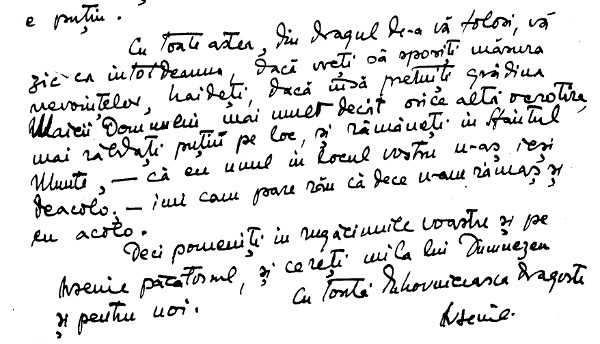 e puțin.
Cu toate astea, din dragul de-a vă folosi, vă
zic ca întotdeauna, dacă vreți să sporiți măsura
nevoințelor, haideți, dacă însă prețuiți grădina
Maicii Domnului mai mult decât orice altă ocrotire,
mai răbdați puțin pe loc, și rămâneți in Sfântul
Munte, – că eu unul in locul vostru n-aș ieși
deacolo; – imi cam pare rău că dece n-am rămas și
eu acolo.
Deci pomeniți in rugăciunile voastre și pe
Arsenie păcătosul, și cereți mila lui Dumnezeu
și pentru noi.
Cu toată duhovniceasca dragoste
Arsenie.